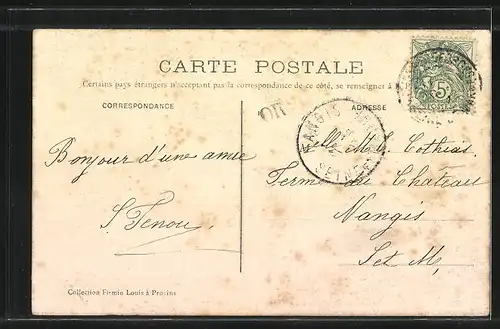 CARTE POSTALE
Certains pays étrangers n'acceptant pas la correspondance de ce côté, se renseigner à
CORRESPONDANCE
ADRESSE
OR
5c
NANGIS
SEINE-ET-
Bonjour d'une amie
Mlle M. L. Cothias
Ferme du Chateau
Nangis
S et M.
Collection Firmin Louis à Provins